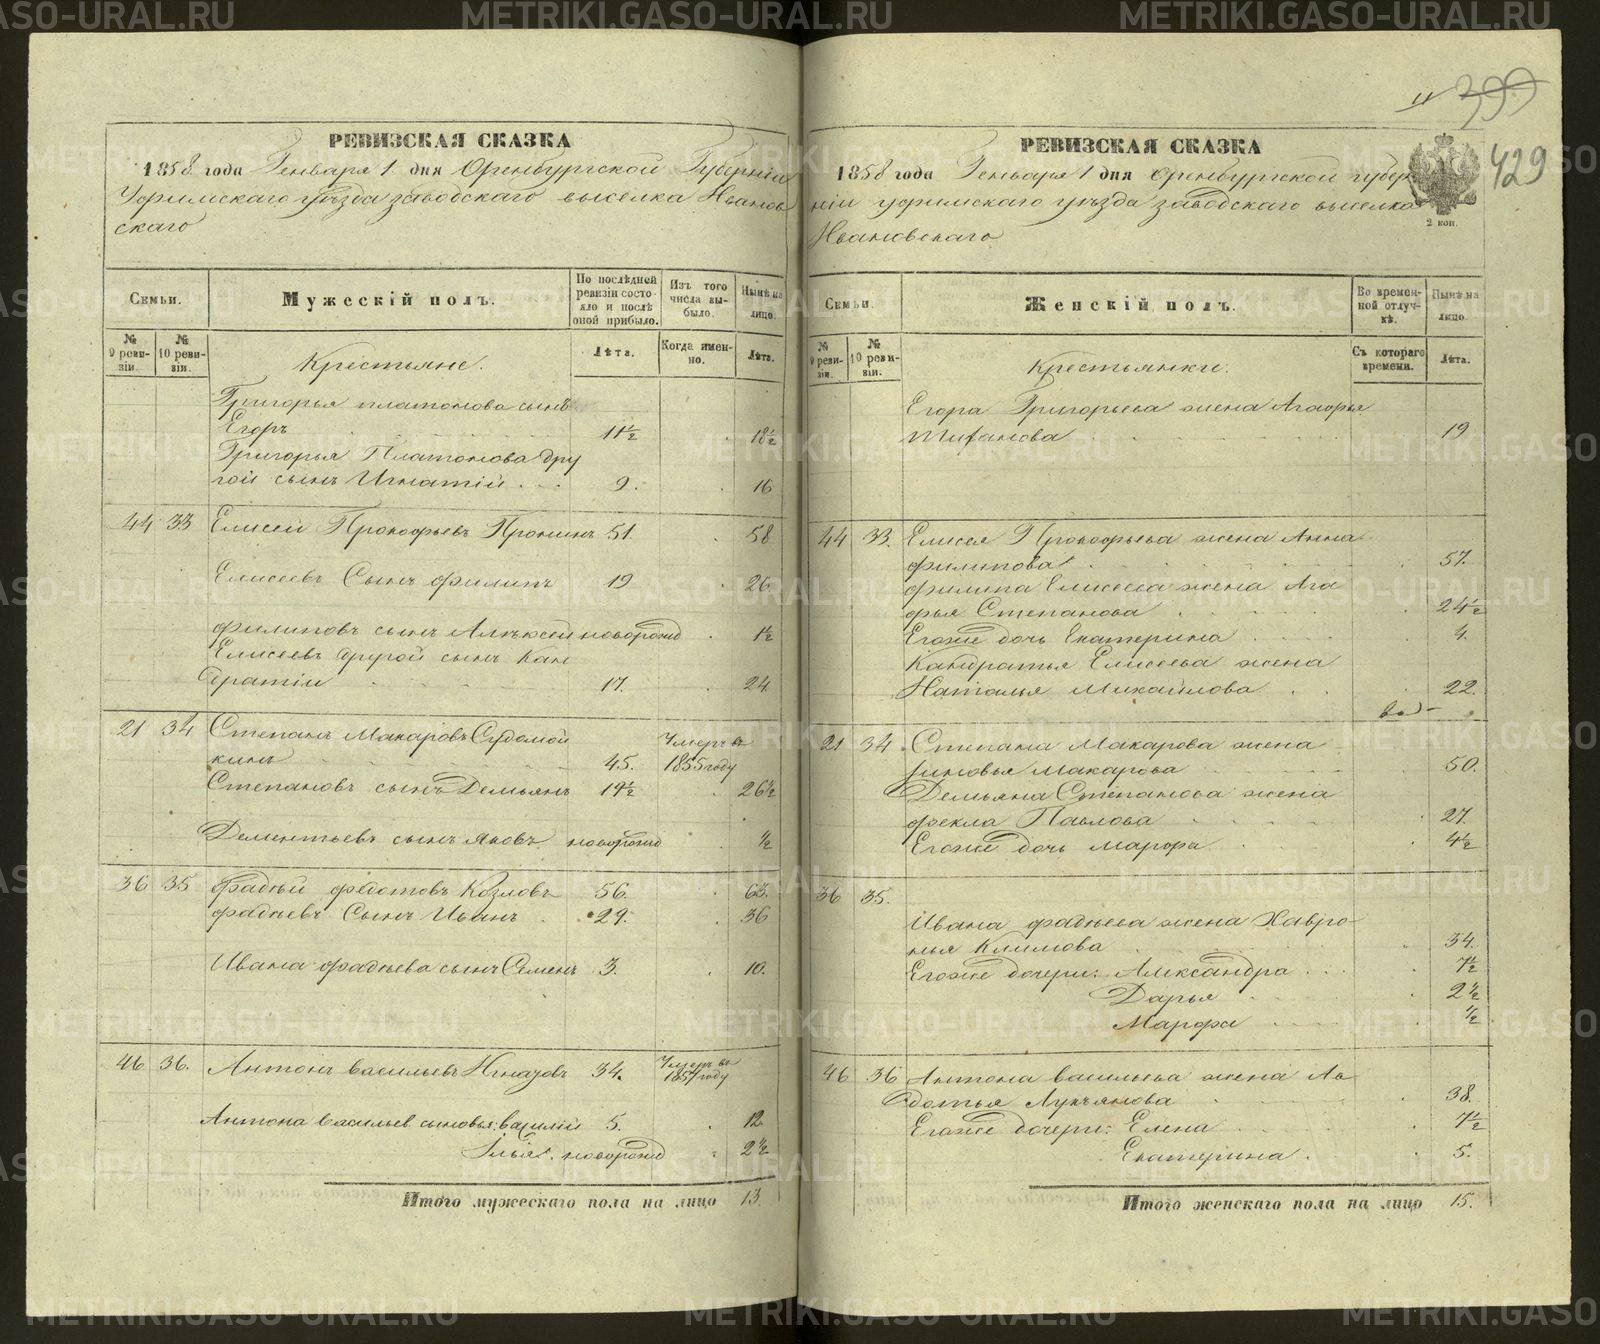 РЕВИЗСКАЯ СКАЗКА
1858 года Генваря 1 дня Оренбургской Губерніи
Уфимскаго уѣзда заводскаго выселка Иванов
скаго
Семьи.
Мужескій полъ.
По послѣдней ревизіи состояло и послѣ оной прибыло.
Изъ того числа выбыло.
Нынѣ на лицо.
№ 9 ревизіи.
№ 10 ревизіи.
Крестьяне.
Лѣта.
Когда именно.
Лѣта.
Григорья платонова сынъ
Егоръ 11½ 18½
Григорья Платонова дру
гой сынъ Игнатій 9. 16
44 33 Елисей Прокофьевъ Пронинъ 51. 58
Елисеевъ Сынъ филипъ 19 26
филиповъ сынъ Алексѣй новорожд 1½
Елисеевъ другой сынъ Кан
дратій 17. 24
21 34 Степанъ Макаровъ Судомой
кинъ 45. Умеръ въ 1855 году
Степановъ сынъ Демьянъ 19½ 26½
Дементьевъ сынъ Яковъ новорожд ½
36 35 фадѣй федотовъ Козловъ 56 63.
фадѣевъ Сынъ Иванъ 29. 36
Ивана фадѣева сынъ Семенъ 3. 10.
46 36. Антонъ васильевъ 34. Умеръ въ 1857 году
Антона васильев сыновья: василій 5. 12
Илья. новорожд 2½
Итого мужескаго пола на лицо 13.
399
429
РЕВИЗСКАЯ СКАЗКА
1858 года Генваря 1 дня Оренбургской губер
ніи уфимскаго уѣзда заводскаго выселка
Ивановскаго
2 коп.
Семьи.
Женскій полъ.
Во временной отлучкѣ.
Нынѣ на лицо.
№ 9 ревизіи.
№ 10 ревизіи.
Крестьянки.
Съ котораго времени.
Лѣта.
Егора Григорьева жена Агафья
19
44 33. Елисея Прокофьева жена Анна
филипова 57.
филипа Елисеева жена Ага
фья Степанова 24½
Егоже дочь Екатерина 4.
Кандратья Елисеева жена
Наталья Михайлова 22.
21 34. Степана Макарова жена
Зиновья Макарова 50.
Демьяна Степанова жена
фекла Павлова 27.
Егоже дочь марфа 4½
36 35.
Ивана фадѣева жена Хавро
нья Климова 34.
Егоже дочери: Александра 7½
Дарья 2½
Марфа ½
46 36 Антона васильева жена Ав
дотья Лукъянова 38.
Егоже дочери: Елена 7½
Екатерина 5.
Итого женскаго пола на лицо 15.
METRIKI.GASO-URAL.RU